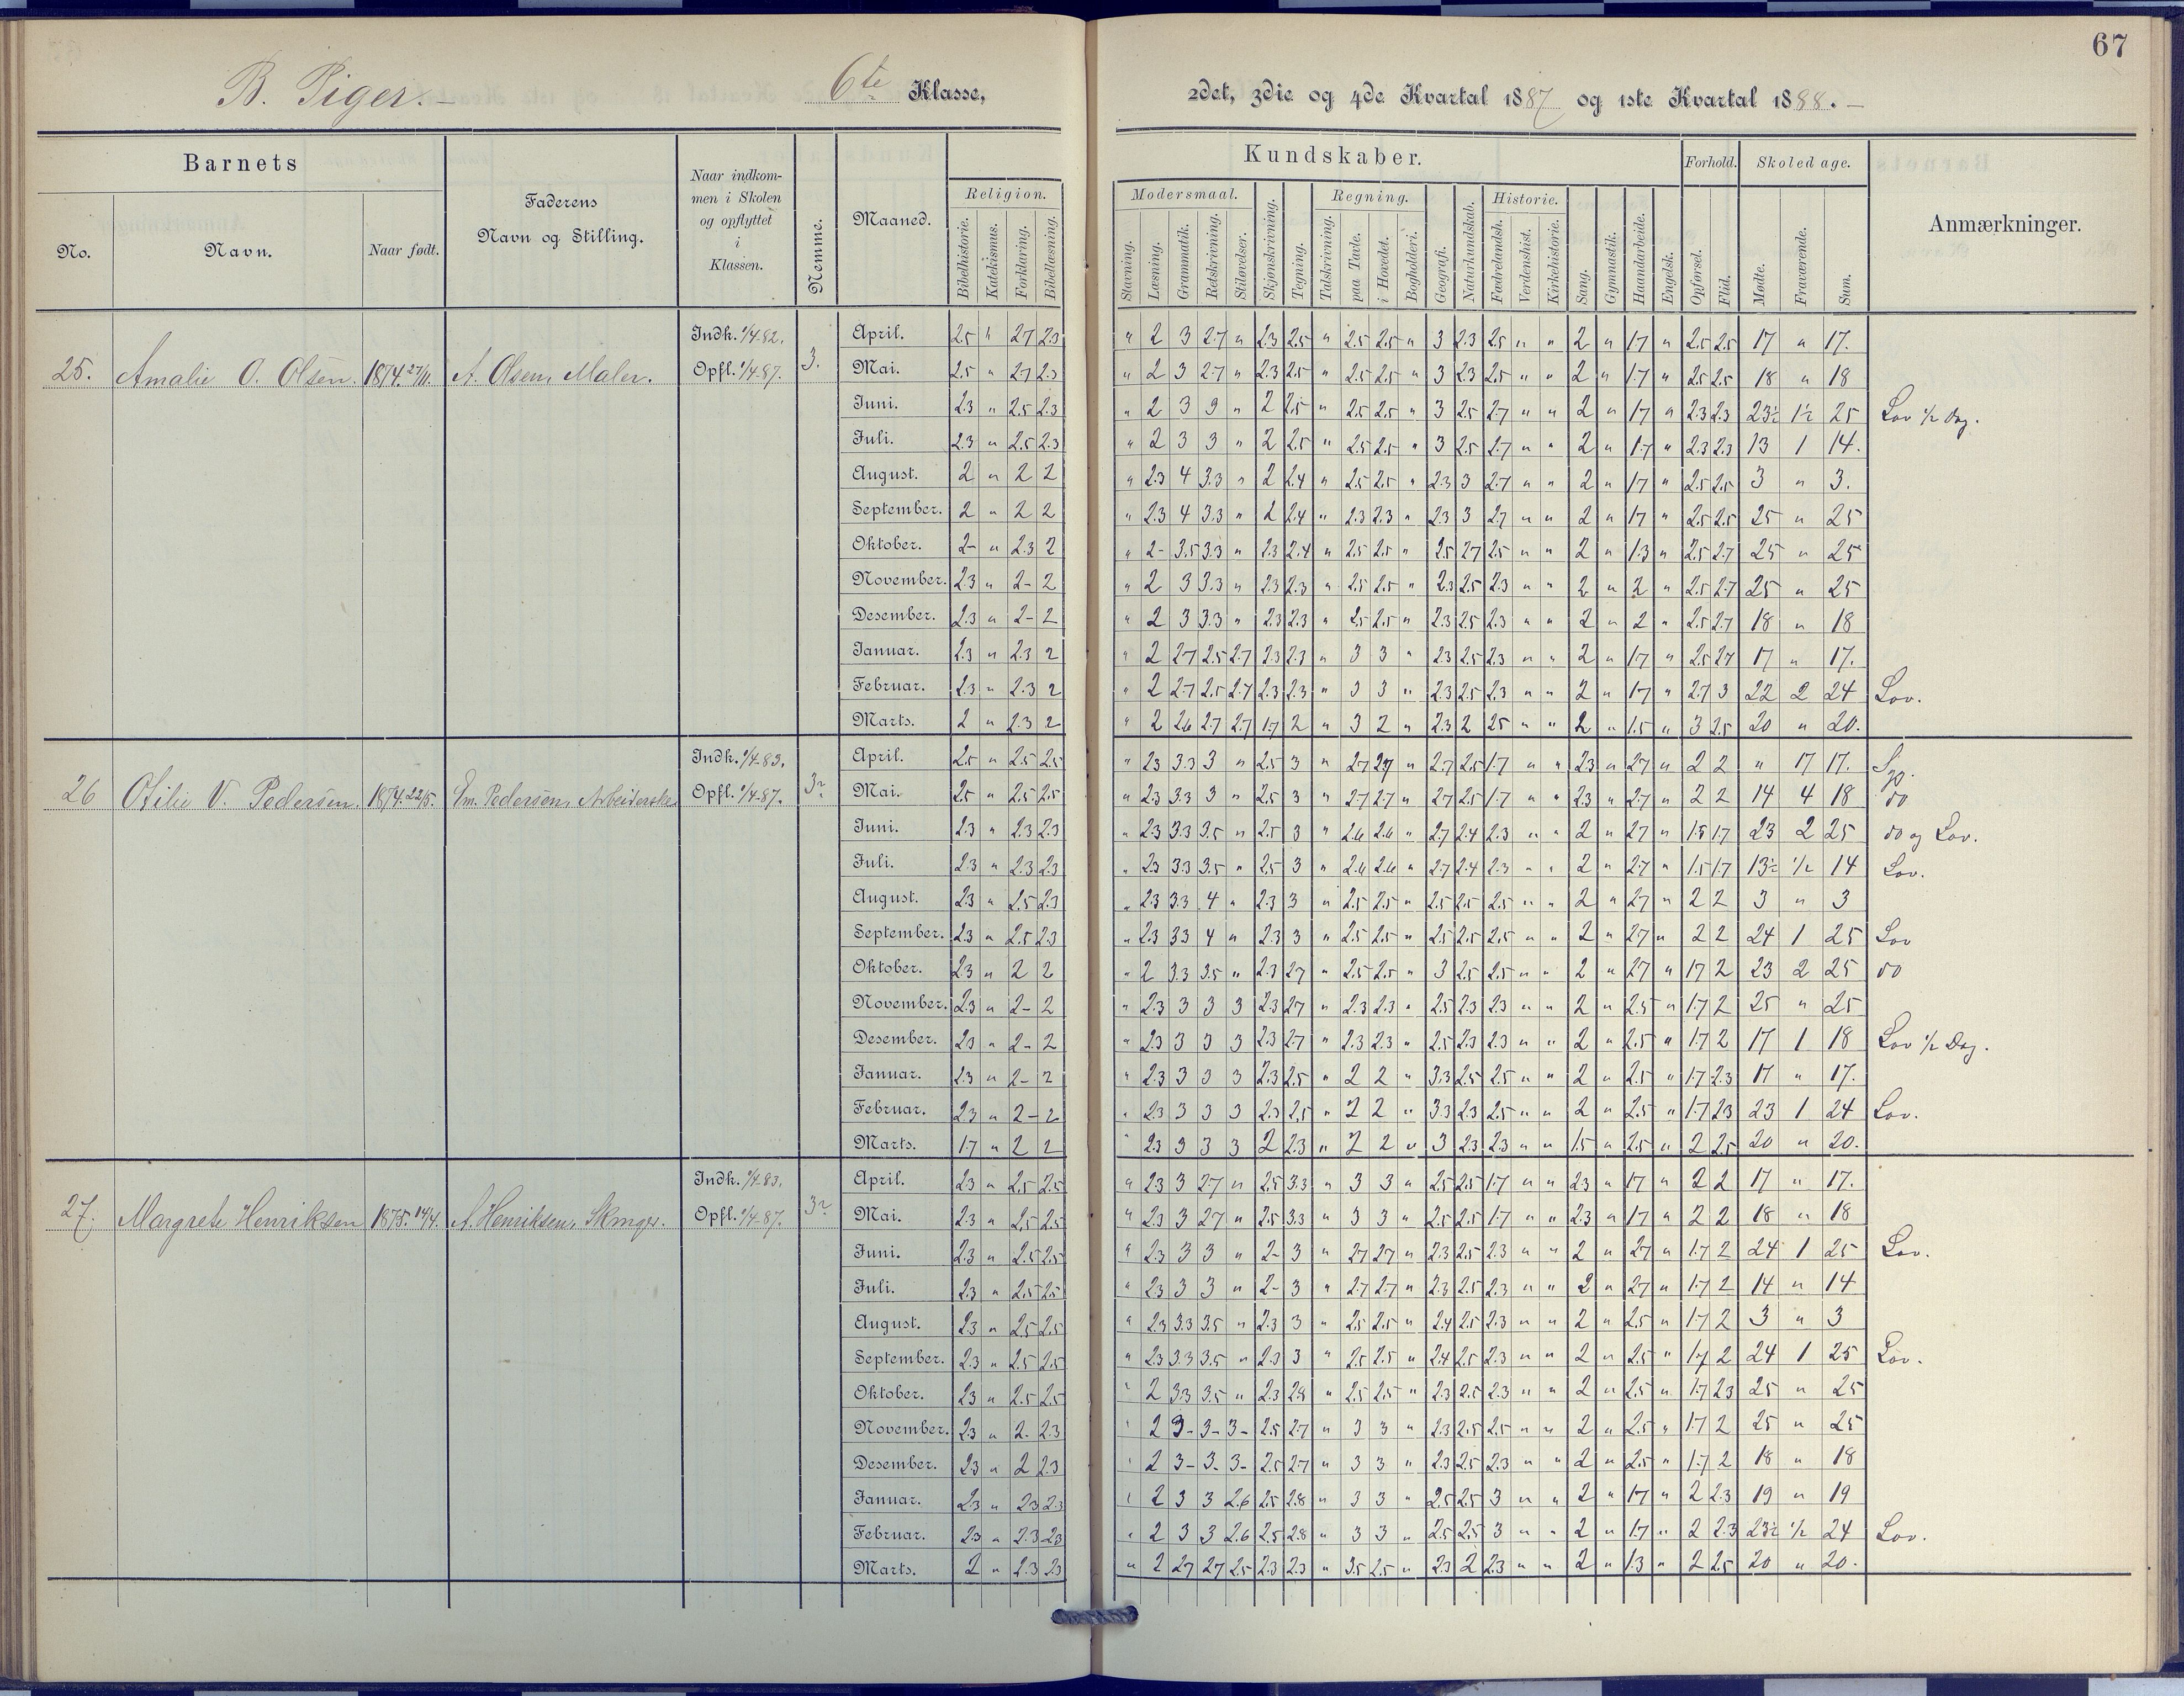 67
B. Piger. –
6te Klasse,
2det, 3die og 4de Kvartal 1887 og 1ste Kvartal 1888. –
Barnets
No.
Navn.
Naar født.
Faderens
Navn og Stilling.
Naar indkom-
men i Skolen
og opflyttet
i
Klassen.
Nemme.
Maaned.
Kundskaber.
Religion.
Bibelhistorie.
Katekismus.
Forklaring.
Bibellæsning.
Modersmaal.
Stavning.
Læsning.
Grammatik.
Retskrivning.
Stiløvelser.
Skjønskrivning.
Tegning.
Regning.
Talskrivning.
paa Tavle.
i Hovedet.
Bogholderi.
Geografi.
Naturkundskab.
Historie.
Fædrelandsh.
Verdenshist.
Kirkehistorie.
Sang.
Gymnastik.
Haandarbeide.
Engelsk.
Forhold.
Opførsel.
Flid.
Skoledage.
Mødte.
Fraværende.
Sum.
Anmærkninger.
25. Amalie O. Olsen. 1874. 27/11. A. Olsen, Maler. Indk. 1/4-82. Opfl. 1/4-87. 3.
April. 2.5 " 2.7 2.3 " 2 3 2.7 " 2.3 2.5 " 2.5 2.5 " 3 2.3 2.5 " " 2 " 1.7 " 2.5 2.5 17 " 17.
Mai. 2.5 " 2.7 2.3 " 2 3 2.7 " 2.3 2.5 " 2.5 2.5 " 3 2.3 2.5 " " 2 " 1.7 " 2.5 2.5 18 " 18
Juni. 2.3 " 2.5 2.3 " 2 3 3 " 2 2.5 " 2.5 2.5 " 3 2.5 2.7 " " 2 " 1.7 " 2.3 2.3 23½ 1½ 25 Lov ½ Dag.
Juli. 2.3 " 2.5 2.3 " 2 3 3 " 2 2.5 " 2.5 2.5 " 3 2.5 2.7 " " 2 " 1.7 " 2.3 2.3 13 1 14.
August. 2 " 2 2 " 2.3 4 3.3 " 2 2.4 " 2.5 2.5 " 2.3 3 2.7 " " 2 " 1.7 " 2.5 2.5 3 " 3.
September. 2 " 2 2 " 2.3 4 3.3 " 2 2.4 " 2.3 2.3 " 2.3 3 2.7 " " 2 " 1.7 " 2.5 2.5 25 " 25
Oktober. 2- " 2.3 2 " 2- 3.5 3.3 " 2.3 2.4 " 2.5 2.5 " 2.5 2.7 2.5 " " 2 " 1.3 " 2.5 2.7 25 " 25
November. 2.3 " 2- 2 " 2 3 3.3 " 2.3 2.3 " 2.5 2.5 " 2.3 2.5 2.3 " " 2 " 2 " 2.5 2.7 25 " 25
Desember. 2.3 " 2- 2 " 2 3 3.3 " 2.3 2.3 " 2.5 2.5 " 2.3 2.5 2.3 " " 2 " 2 " 2.5 2.7 18 " 18
Januar. 2.3 " 2.3 2 " 2 2.7 2.5 2.7 2.3 2.3 " 3 3 " 2.3 2.5 2.3 " " 2 " 1.7 " 2.5 2.7 17 " 17.
Februar. 2.3 " 2.3 2 " 2 2.7 2.5 2.7 2.3 2.3 " 3 3 " 2.3 2.5 2.3 " " 2 " 1.7 " 2.7 3 22 2 24 Lov.
Marts. 2 " 2.3 2 " 2 2.6 2.7 2.7 1.7 2 " 3 2 " 2.3 2 2.5 " " 2 " 1.5 " 3 2.5 20 " 20.
26 Otilie V. Pedersen. 1874. 22/5. Em. Pedersen, Arbeiderske Indk. 1/4-83. Opfl. 1/4-87. 3-
April. 2.5 " 2.5 2.5 " 2.3 3.3 3 " 2.5 3 " 2.7 2.7 " 2.7 2.5 1.7 " " 2.3 " 2.7 " 2 2 " 17 17. Syg.
Mai. 2.5 " 2.5 2.5 " 2.3 3.3 3 " 2.5 3 " 2.7 2.7 " 2.7 2.5 1.7 " " 2.3 " 2.7 " 2 2 14 4 18 do
Juni. 2.3 " 2.3 2.3 " 2.3 3.3 3.5 " 2.5 3 " 2.6 2.6 " 2.7 2.4 2.3 " " 2 " 2.7 " 1.5 1.7 23 2 25 do og Lov.
Juli. 2.3 " 2.3 2.3 " 2.3 3.3 3.5 " 2.5 3 " 2.6 2.6 " 2.7 2.4 2.3 " " 2 " 2.7 " 1.5 1.7 13½ ½ 14 Lov.
August. 2.3 " 2.5 2.3 " 2.3 3.3 4 " 2.3 3 " 2.5 2.5 " 2.5 2.5 2.5 " " 2 " 2.7 " 2 2 3 " 3
September. 2.3 " 2.5 2.3 " 2.3 3.3 4 " 2.3 3 " 2.5 2.5 " 2.5 2.5 2.5 " " 2 " 2.7 " 2 2 24 1 25 Lov
Oktober. 2.3 " 2 2 " 2 3.3 3.5 " 2.3 2.7 " 2.5 2.5 " 3 2.5 2.5 " " 2 " 2.7 " 1.7 2 23 2 25 do
November. 2.3 " 2- 2 " 2.3 3 3 3 2.3 2.7 " 2.3 2.3 " 2.5 2.3 2.3 " " 2 " 2.5 " 1.7 2 25 " 25
Desember. 2.3 " 2- 2 " 2.3 3 3 3 2.3 2.7 " 2.3 2.3 " 2.5 2.3 2.3 " " 2 " 2.5 " 1.7 2 17 1 18 Lov ½ Dag.
Januar. 2.3 " 2- 2 " 2.3 3 3 3 2.3 2.5 " 2 2 " 3.3 2.5 2.5 " " 2 " 2.5 " 1.7 2.3 17 " 17.
Februar. 2.3 " 2- 2 " 2.3 3 3 3 2.3 2.5 " 2 2 " 3.3 2.3 2.5 " " 2 " 2.5 " 1.7 2.3 23 1 24 Lov.
Marts. 1.7 " 2 2 " 2.3 3 3 3 2 2.3 " 2 2 " 3 2.3 2.3 " " 1.5 " 2.5 " 2 2.5 20 " 20.
27. Margrete Henriksen 1875. 14/4. A. Henriksen, Skinger. Indk. 1/4-83. Opfl. 1/4-87. 3-
April. 2.3 " 2.5 2.5 " 2.3 3 2.7 " 2.5 3.3 " 3 3 " 2.5 2.5 1.7 " " 2.3 " 1.7 " 2 2 17 " 17.
Mai. 2.3 " 2.5 2.5 " 2.3 3 2.7 " 2.5 3.3 " 3 3 " 2.5 2.5 1.7 " " 2.3 " 1.7 " 2 2 18 " 18
Juni. 2.3 " 2.5 2.5 " 2.3 3 3 " 2- 3 " 2.7 2.7 " 2.3 2.5 2.3 " " 2 " 2.7 " 1.7 2 24 1 25 Lov.
Juli. 2.3 " 2.5 2.5 " 2.3 3 3 " 2- 3 " 2.7 2.7 " 2.3 2.5 2.3 " " 2 " 2.7 " 1.7 2 14 " 14
August. 2.3 " 2.5 2.5 " 2.3 3.3 3.5 " 2.3 3 " 2.5 2.5 " 2.4 2.5 2.3 " " 2 " 2.5 " 1.7 2 3 " 3
September. 2.3 " 2.5 2.5 " 2.3 3.3 3.5 " 2.3 3 " 2.5 2.5 " 2.4 2.5 2.3 " " 2 " 2.5 " 1.7 2 24 1 25 Lov.
Oktober. 2.3 " 2.5 2.5 " 2 3.3 3.5 " 2.3 2.8 " 2.5 2.5 " 2.3 2.5 2.3 " " 2 " 2.5 " 1.7 2.3 25 " 25
November. 2.3 " 2- 2.3 " 2 3- 3- 3- 2.5 2.7 " 3 3 " 2.3 2.5 2.5 " " 2 " 2.5 " 1.7 2 25 " 25
Desember. 2.3 " 2 2.3 " 2 3- 3- 3- 2.5 2.7 " 3 3 " 2.3 2.5 2.3 " " 2 " 2.5 " 1.7 2 18 " 18
Januar. 2.3 " 2.3 2.3 " 2 3 3 2.6 2.5 2.8 " 3 3 " 2.5 2.5 3 " " 2 " 1.7 " 2 2.3 19 " 19
Februar. 2.3 " 2.3 2.3 " 2 3 3 2.6 2.5 2.8 " 3 3 " 2.5 2.5 3 " " 2 " 1.7 " 2 2.3 23½ ½ 24 Lov.
Marts. 2 " 2.3 2.3 " 2 2.7 2.7 2.5 2.3 2.3 " 3.5 2.5 " 2.3 2 2.3 " " 2 " 1.3 " 2 2.5 20 " 20.